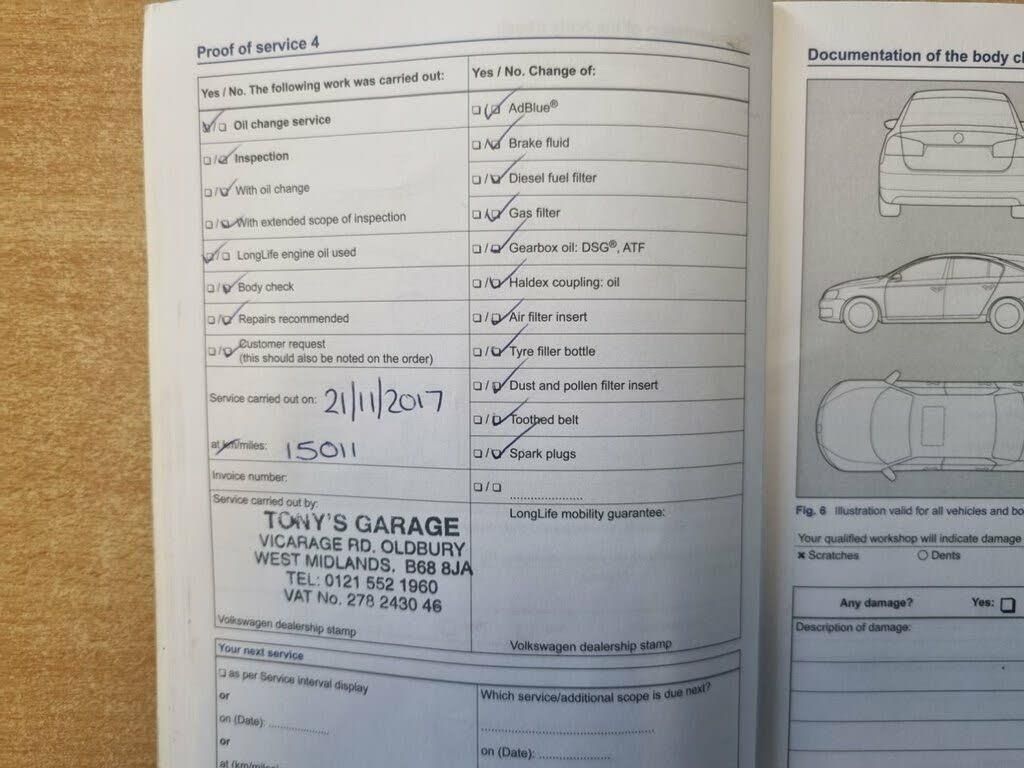 Proof of service 4
Yes / No. The following work was carried out:
☑/☐ Oil change service
☐/☑ Inspection
☐/☑ With oil change
☐/☑ With extended scope of inspection
☑/☐ LongLife engine oil used
☐/☑ Body check
☐/☑ Repairs recommended
☐/☑ Customer request
(this should also be noted on the order)
Service carried out on: 21/11/2017
at km/miles: 15011
Invoice number:
Service carried out by:
TONY'S GARAGE
VICARAGE RD. OLDBURY
WEST MIDLANDS. B68 8JA
TEL: 0121 552 1960
VAT No. 278 2430 46
Volkswagen dealership stamp
Yes / No. Change of:
☐/☑ AdBlue®
☐/☑ Brake fluid
☐/☑ Diesel fuel filter
☐/☑ Gas filter
☐/☑ Gearbox oil: DSG®, ATF
☐/☑ Haldex coupling: oil
☐/☑ Air filter insert
☐/☑ Tyre filler bottle
☐/☑ Dust and pollen filter insert
☐/☑ Toothed belt
☐/☑ Spark plugs
☐/☐ ....................
LongLife mobility guarantee:
Volkswagen dealership stamp
Your next service
☐ as per Service interval display
or
on (Date): ................
or
at (km/miles
Which service/additional scope is due next?
on (Date): ....................
Documentation of the body c
Fig. 6 Illustration valid for all vehicles and bo
Your qualified workshop will indicate damage
✖ Scratches
○ Dents
Any damage? Yes: ☐
Description of damage: